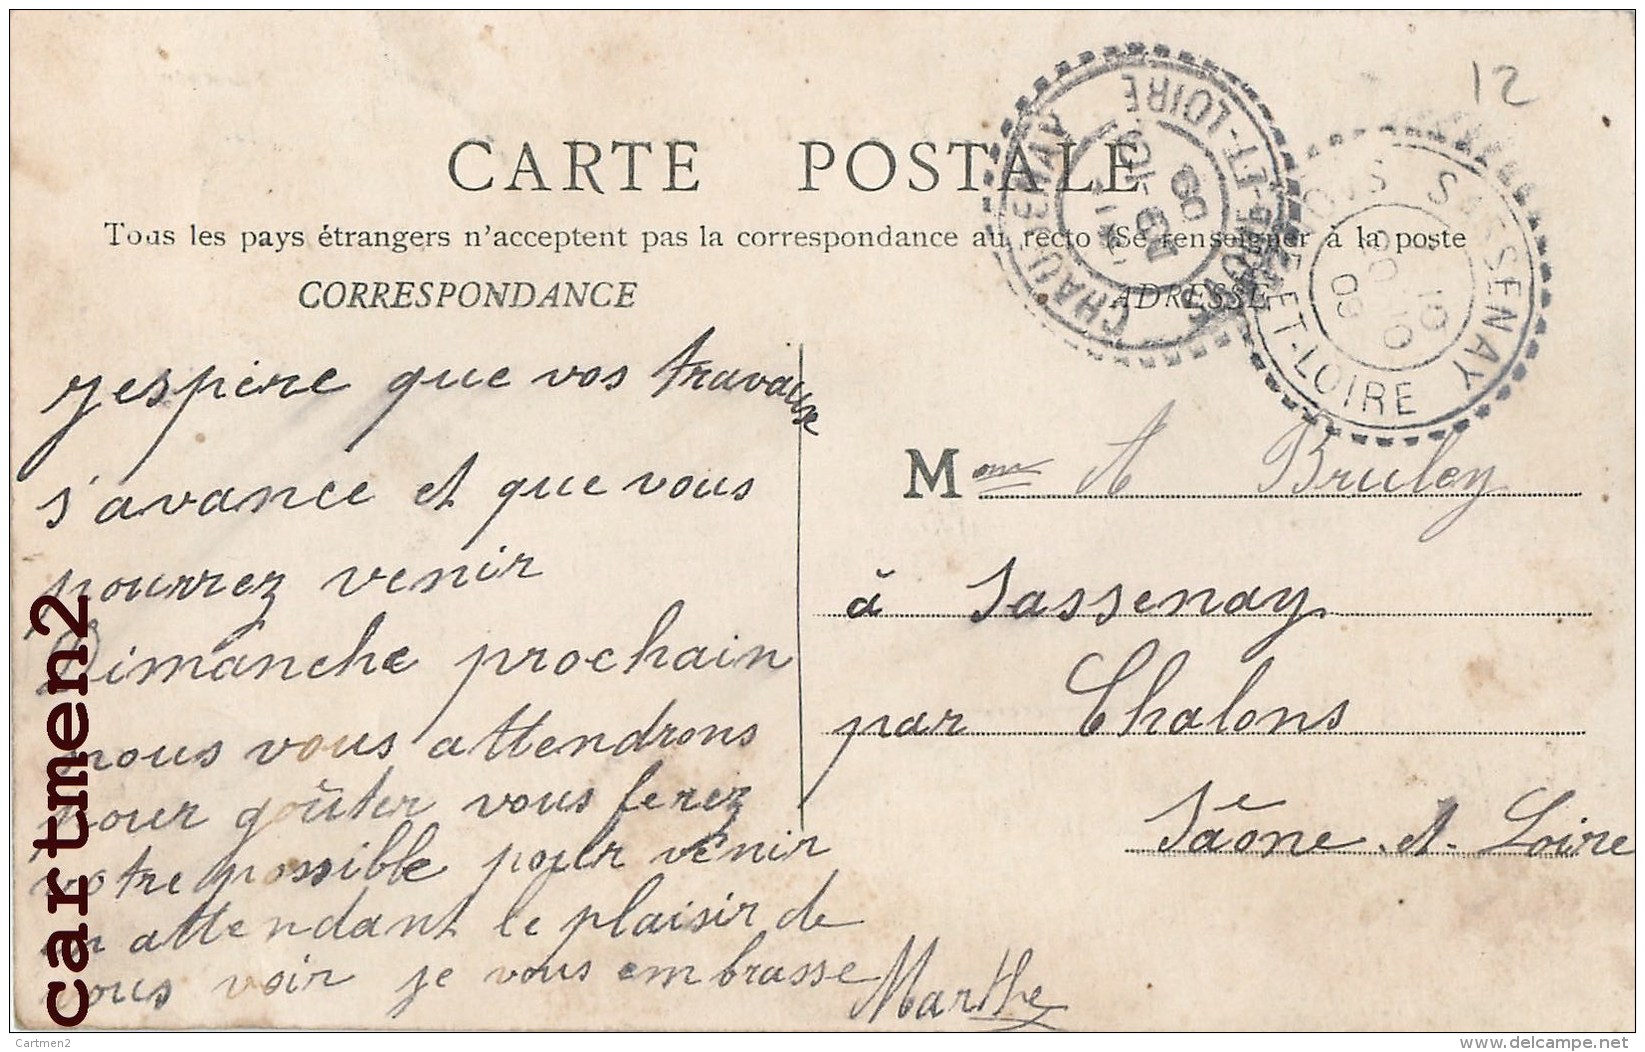 12
CARTE POSTALE
Tous les pays étrangers n'acceptent pas la correspondance au recto (Se renseigner à la poste
CORRESPONDANCE
ADRESSE
CHAUDENAY
ET-LOIRE
09
SASSENAY
ET-LOIRE
10
09
j'espère que vos travaux
s'avance et que vous
pourrez venir
Dimanche prochain
nous vous attendrons
pour goûter vous ferez
votre possible pour venir
en attendant le plaisir de
vous voir je vous embrasse
Marthe
Mme A Bruley
à Sassenay
par Chalons
Saône-et-Loire
cartmen2
Cartmen2
www.delcampe.net